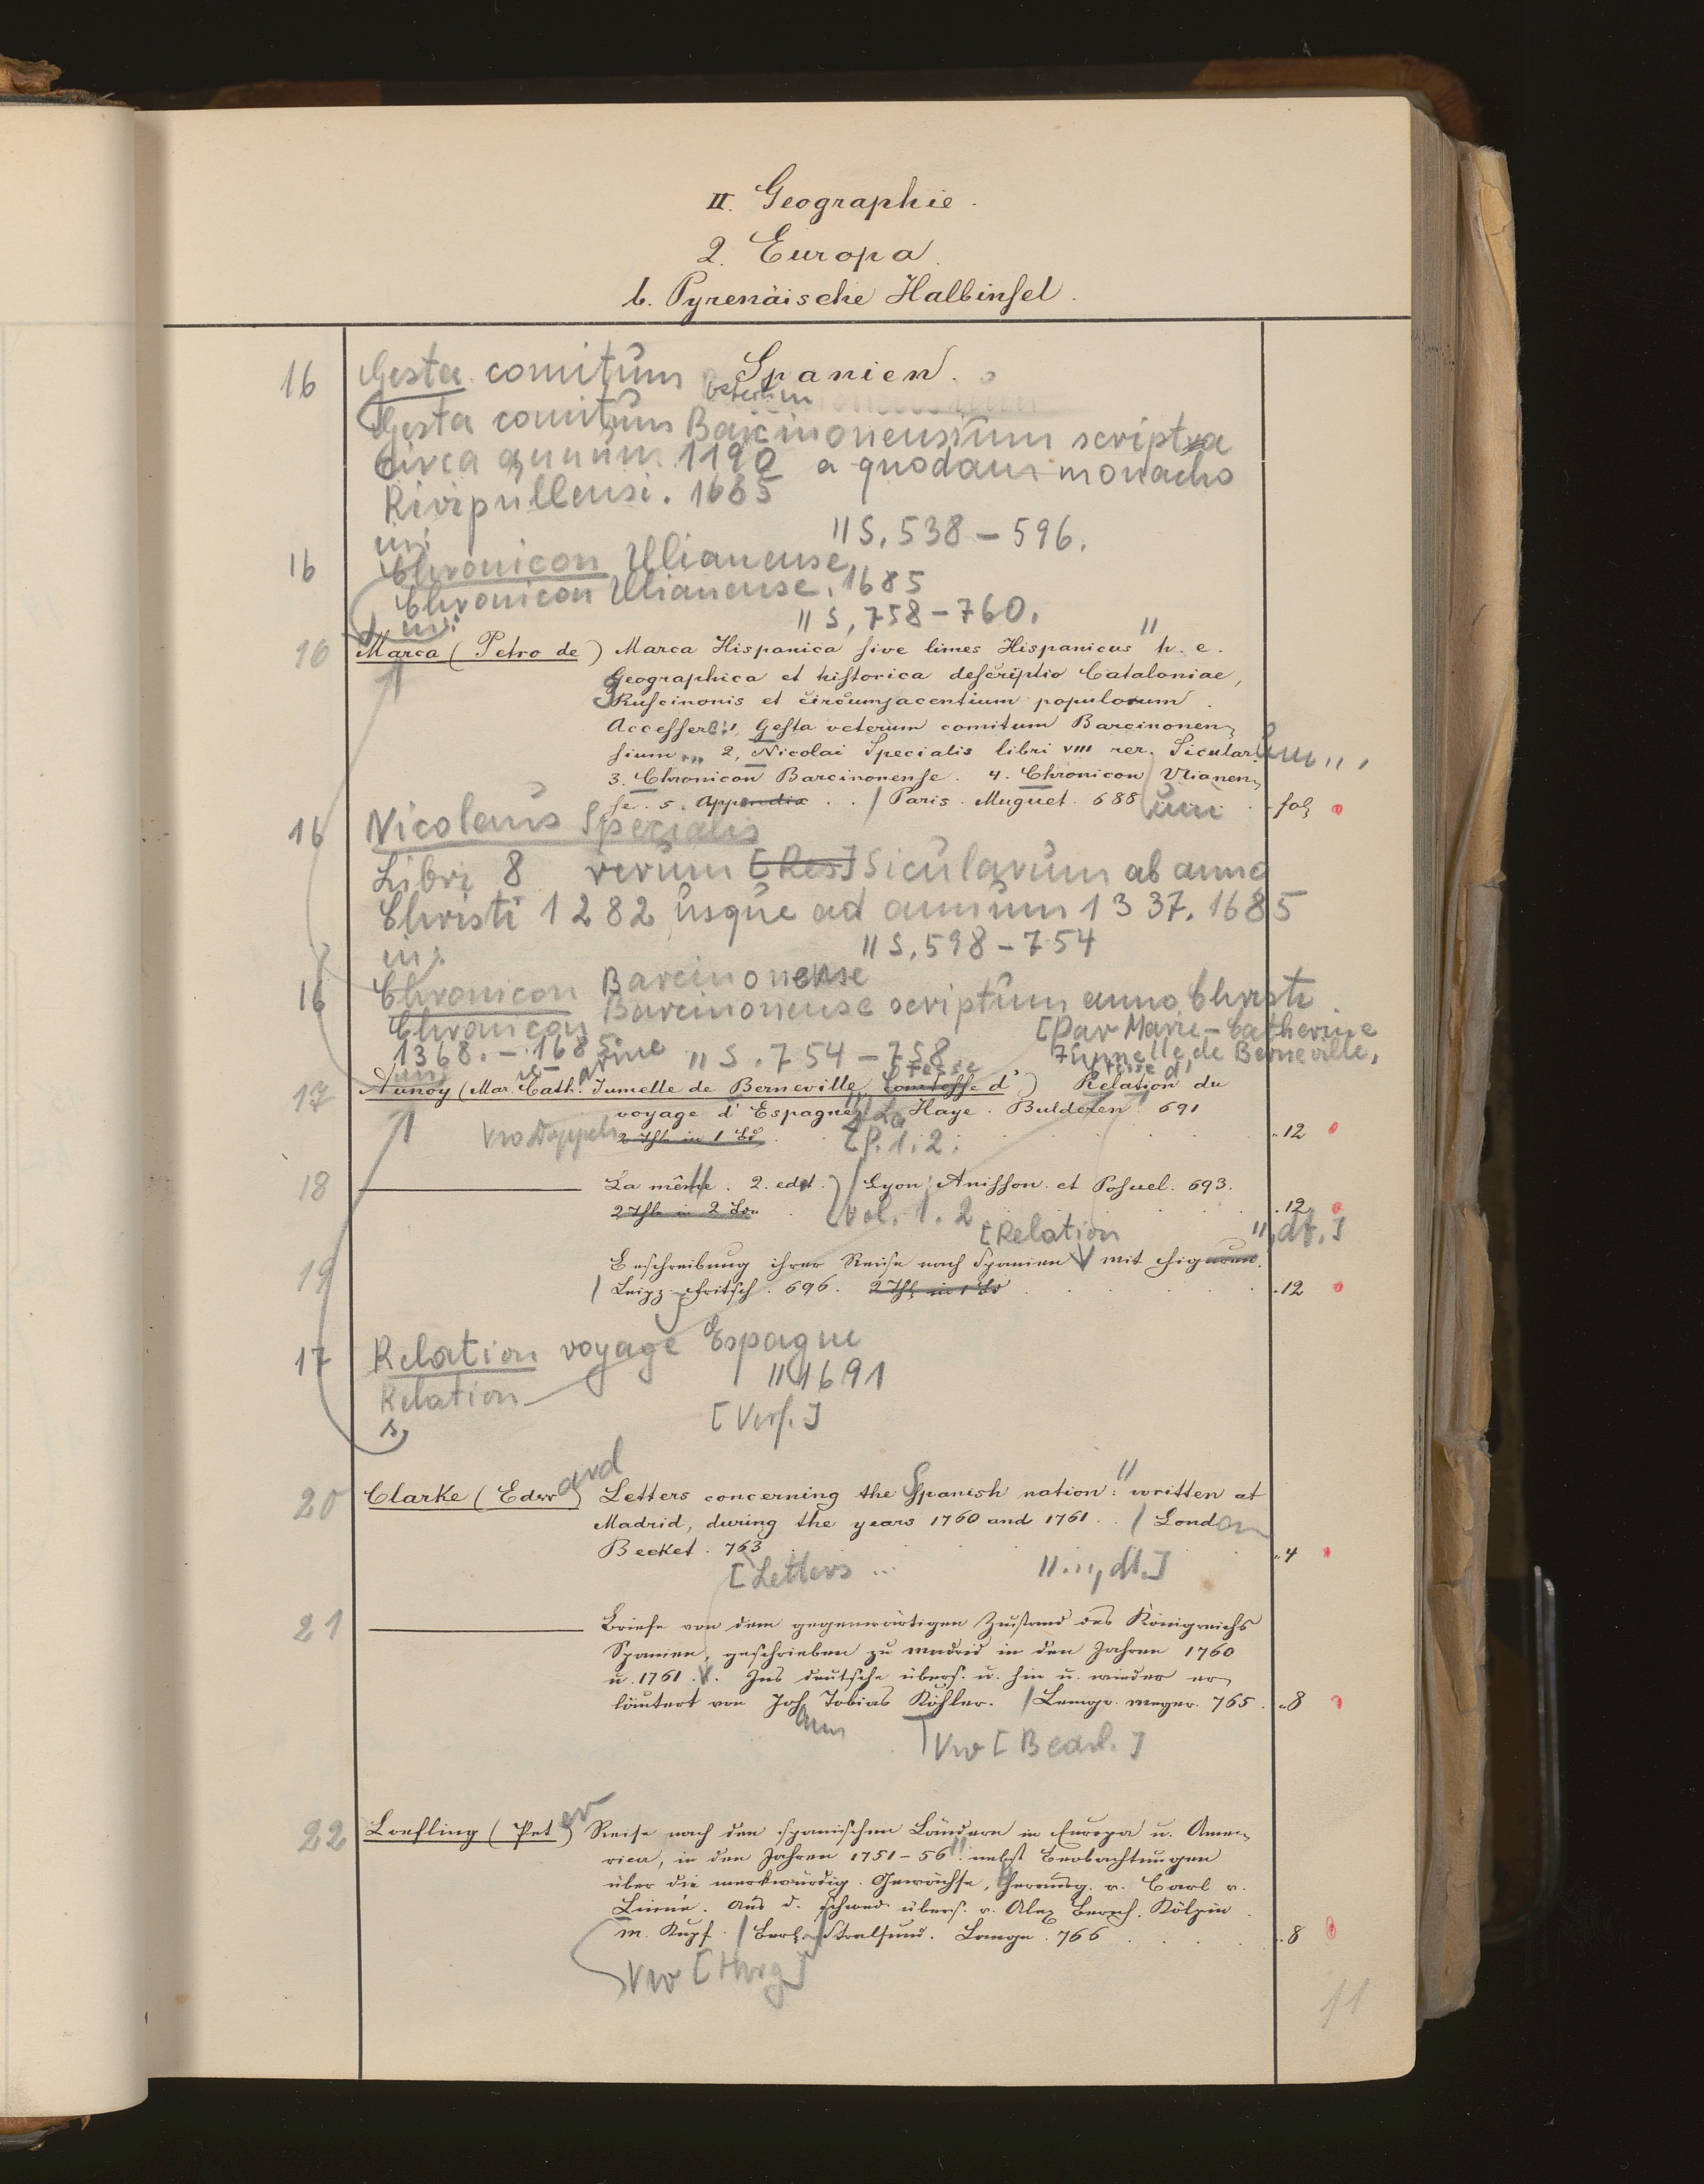 II. Geographie.
2. Europa.
b. Pyrenäische Halbinsel.
Spanien.
16 Gesta comitum
veterum
Gesta comitum Barcinonensium scripta
circa annum 1190 a quodam monacho
Rivipullensi. 1685
in: // S. 538-596.
16 Chronicon Ulianense
Chronicon Ulianense. 1685
in: // S. 758-760.
16 Marca (Petro de) Marca Hispanica sive limes Hispanicus // h. e.
Geographica et historica descriptio Cataloniae,
Ruscinonis et circumjacentium populorum.
Accessere: 1, Gesta veterum comitum Barcinonen-
sium 2, Nicolai Specialis libri VIII rer. Sicular.
3. Chronicon Barcinonense. 4. Chronicon Ulianen-
se. 5. Appendix . . / Paris. Muguet. 688 . fol.
16 Nicolaus Specialis
Libri 8 rerum [Res] Sicularum ab anno
Christi 1282 usque ad annum 1337. 1685
in: // S. 598-754
16 Chronicon Barcinonense
Chronicon Barcinonense scriptum anno Christi
1368. - 1685.
in: // S. 754-758
[Par Marie-Catherine
Jumelle de Berneville,
17 Aunoy (Mar. Cath. Jumelle de Berneville, Comtesse d') Relation du
voyage d'Espagne // La Haye. Bulderen. 691
2 Thle in 1 Bd. [P. 1. 2. .12
18 La même // . 2. edit.) / Lyon, Anisson et Posuel. 693.
2 Thle in 2 Bdn [Vol. 1. 2. .12
[Relation // dt.]
19 Beschreibung ihrer Reise nach Spanien mit Figuren.
/ Leipz. Fritsch. 696. 2 Thle in 1 Bd .12
17 Relation voyage Espagne
Relation // 1691
s. [Verf.]
20 Clarke (Edward) Letters concerning the Spanish nation: // written at
Madrid, during the years 1760 and 1761. . / London
Becket. 763 .4
[Letters ... // ..., dt.]
21 Briefe von dem gegenwärtigen Zustand des Königreichs
Spanien, geschrieben zu Madrid in den Jahren 1760
u. 1761. Ins deutsche übers. u. hin u. wieder er-
läutert von Joh Tobias Köhler. / Lemgo. Meyer. 765. .8
ann
Vw [Bearb.]
22 Loefling (Peter) Reise nach den spanischen Ländern in Europa u. Ame-
rica, in den Jahren 1751-56 // nebst Beobachtungen
über die merkwürdig. Gewächse, herausg. v. Carl v.
Linné. Aus d. schwed. übers. v. Alex. Bernh. Kölpin.
m. Kupf. / Berl. Stralsund. Lange. 766 .8
Vw [Hrsg]
11